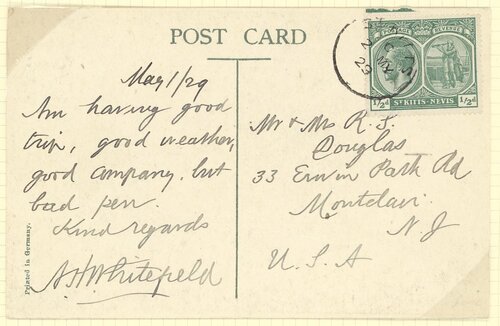 POST CARD
POSTAGE & REVENUE
½d ST KITTS-NEVIS ½d
May 1/29
Am having good
trip, good weather,
good company, but
bad pen.
Kind regards
A H Whitefield
Mr & Mrs R. S.
Douglas
33 Erwin Park Rd
Montclair
N J
U. S. A
Printed in Germany.